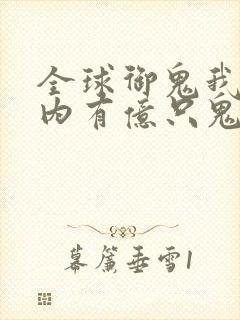 全球御鬼我
内有億只鬼
幕簾垂雪1